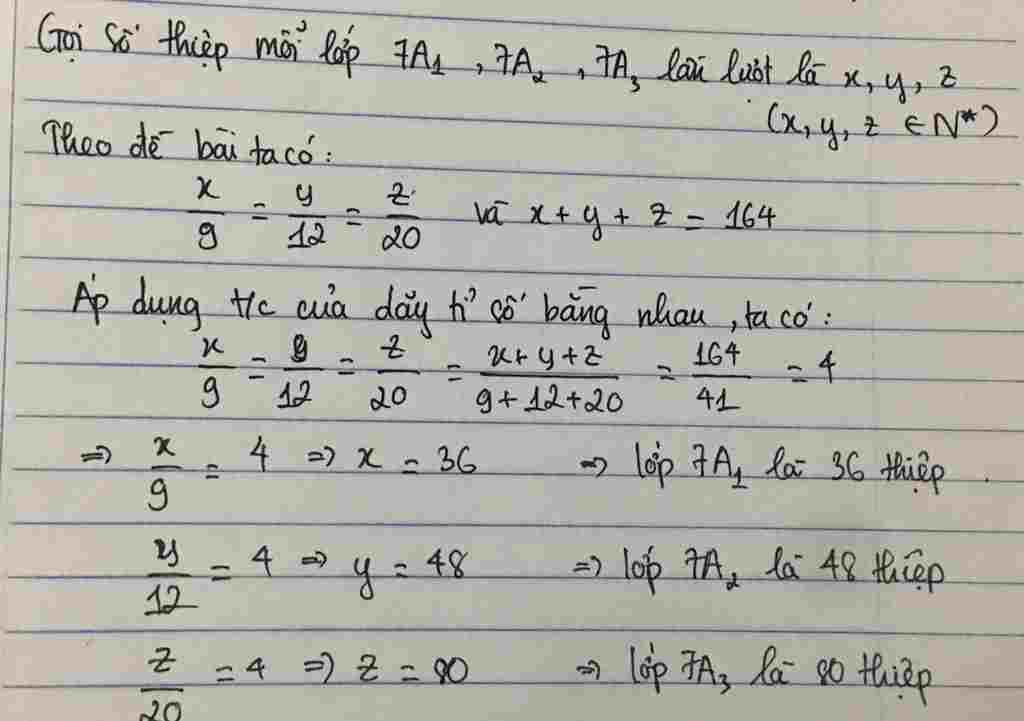 Gọi số thiệp mỗi lớp 7A₁, 7A₂, 7A₃ lần lượt là x, y, z
(x, y, z ∈ N*)
Theo đề bài ta có:
x/9 = y/12 = z/20 và x + y + z = 164
Áp dụng t/c của dãy tỉ số bằng nhau, ta có:
x/9 = y/12 = z/20 = (x+y+z)/(9+12+20) = 164/41 = 4
=> x/9 = 4 => x = 36 => lớp 7A₁ là 36 thiệp
y/12 = 4 => y = 48 => lớp 7A₂ là 48 thiệp
z/20 = 4 => z = 80 => lớp 7A₃ là 80 thiệp